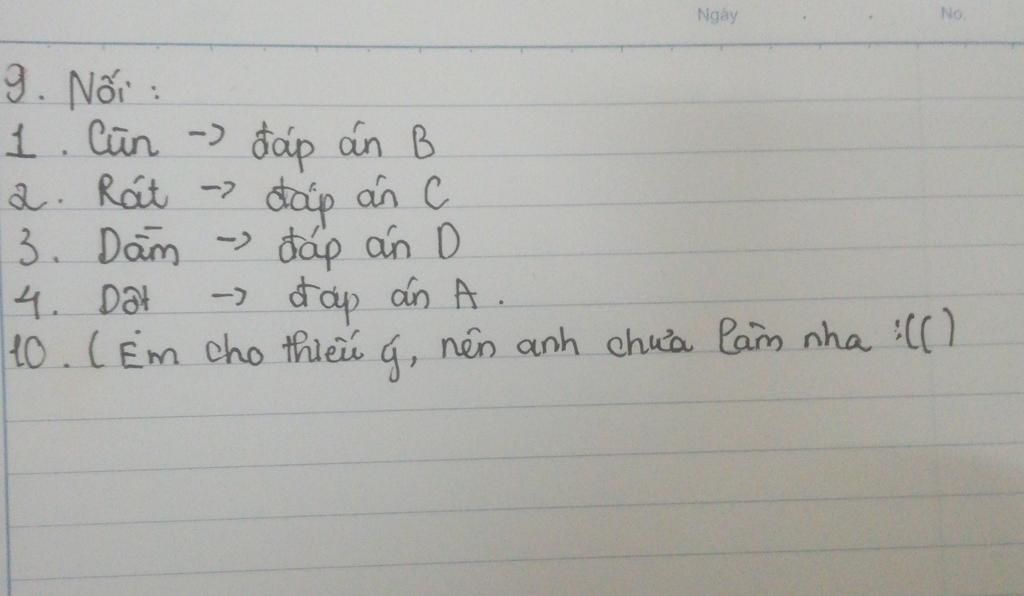 Ngày . . No.
9. Nối :
1. Cũn -> đáp án B
2. Rát -> đáp án C
3. Dẫm -> đáp án D
4. Dột -> đáp án A.
10. (Em cho thiếu ý, nên anh chưa làm nha :(()